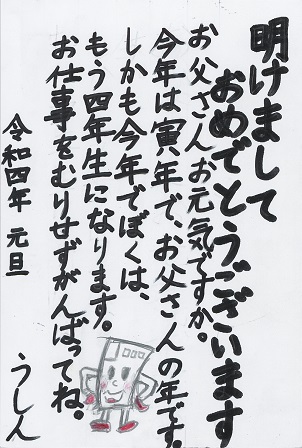 明けまして
おめでとうございます
お父さんお元気ですか。
今年は寅年で、お父さんの年です。
しかも今年でぼくは、
もう四年生になります。
お仕事をむりせずがんばってね。
令和四年 元旦
うしん